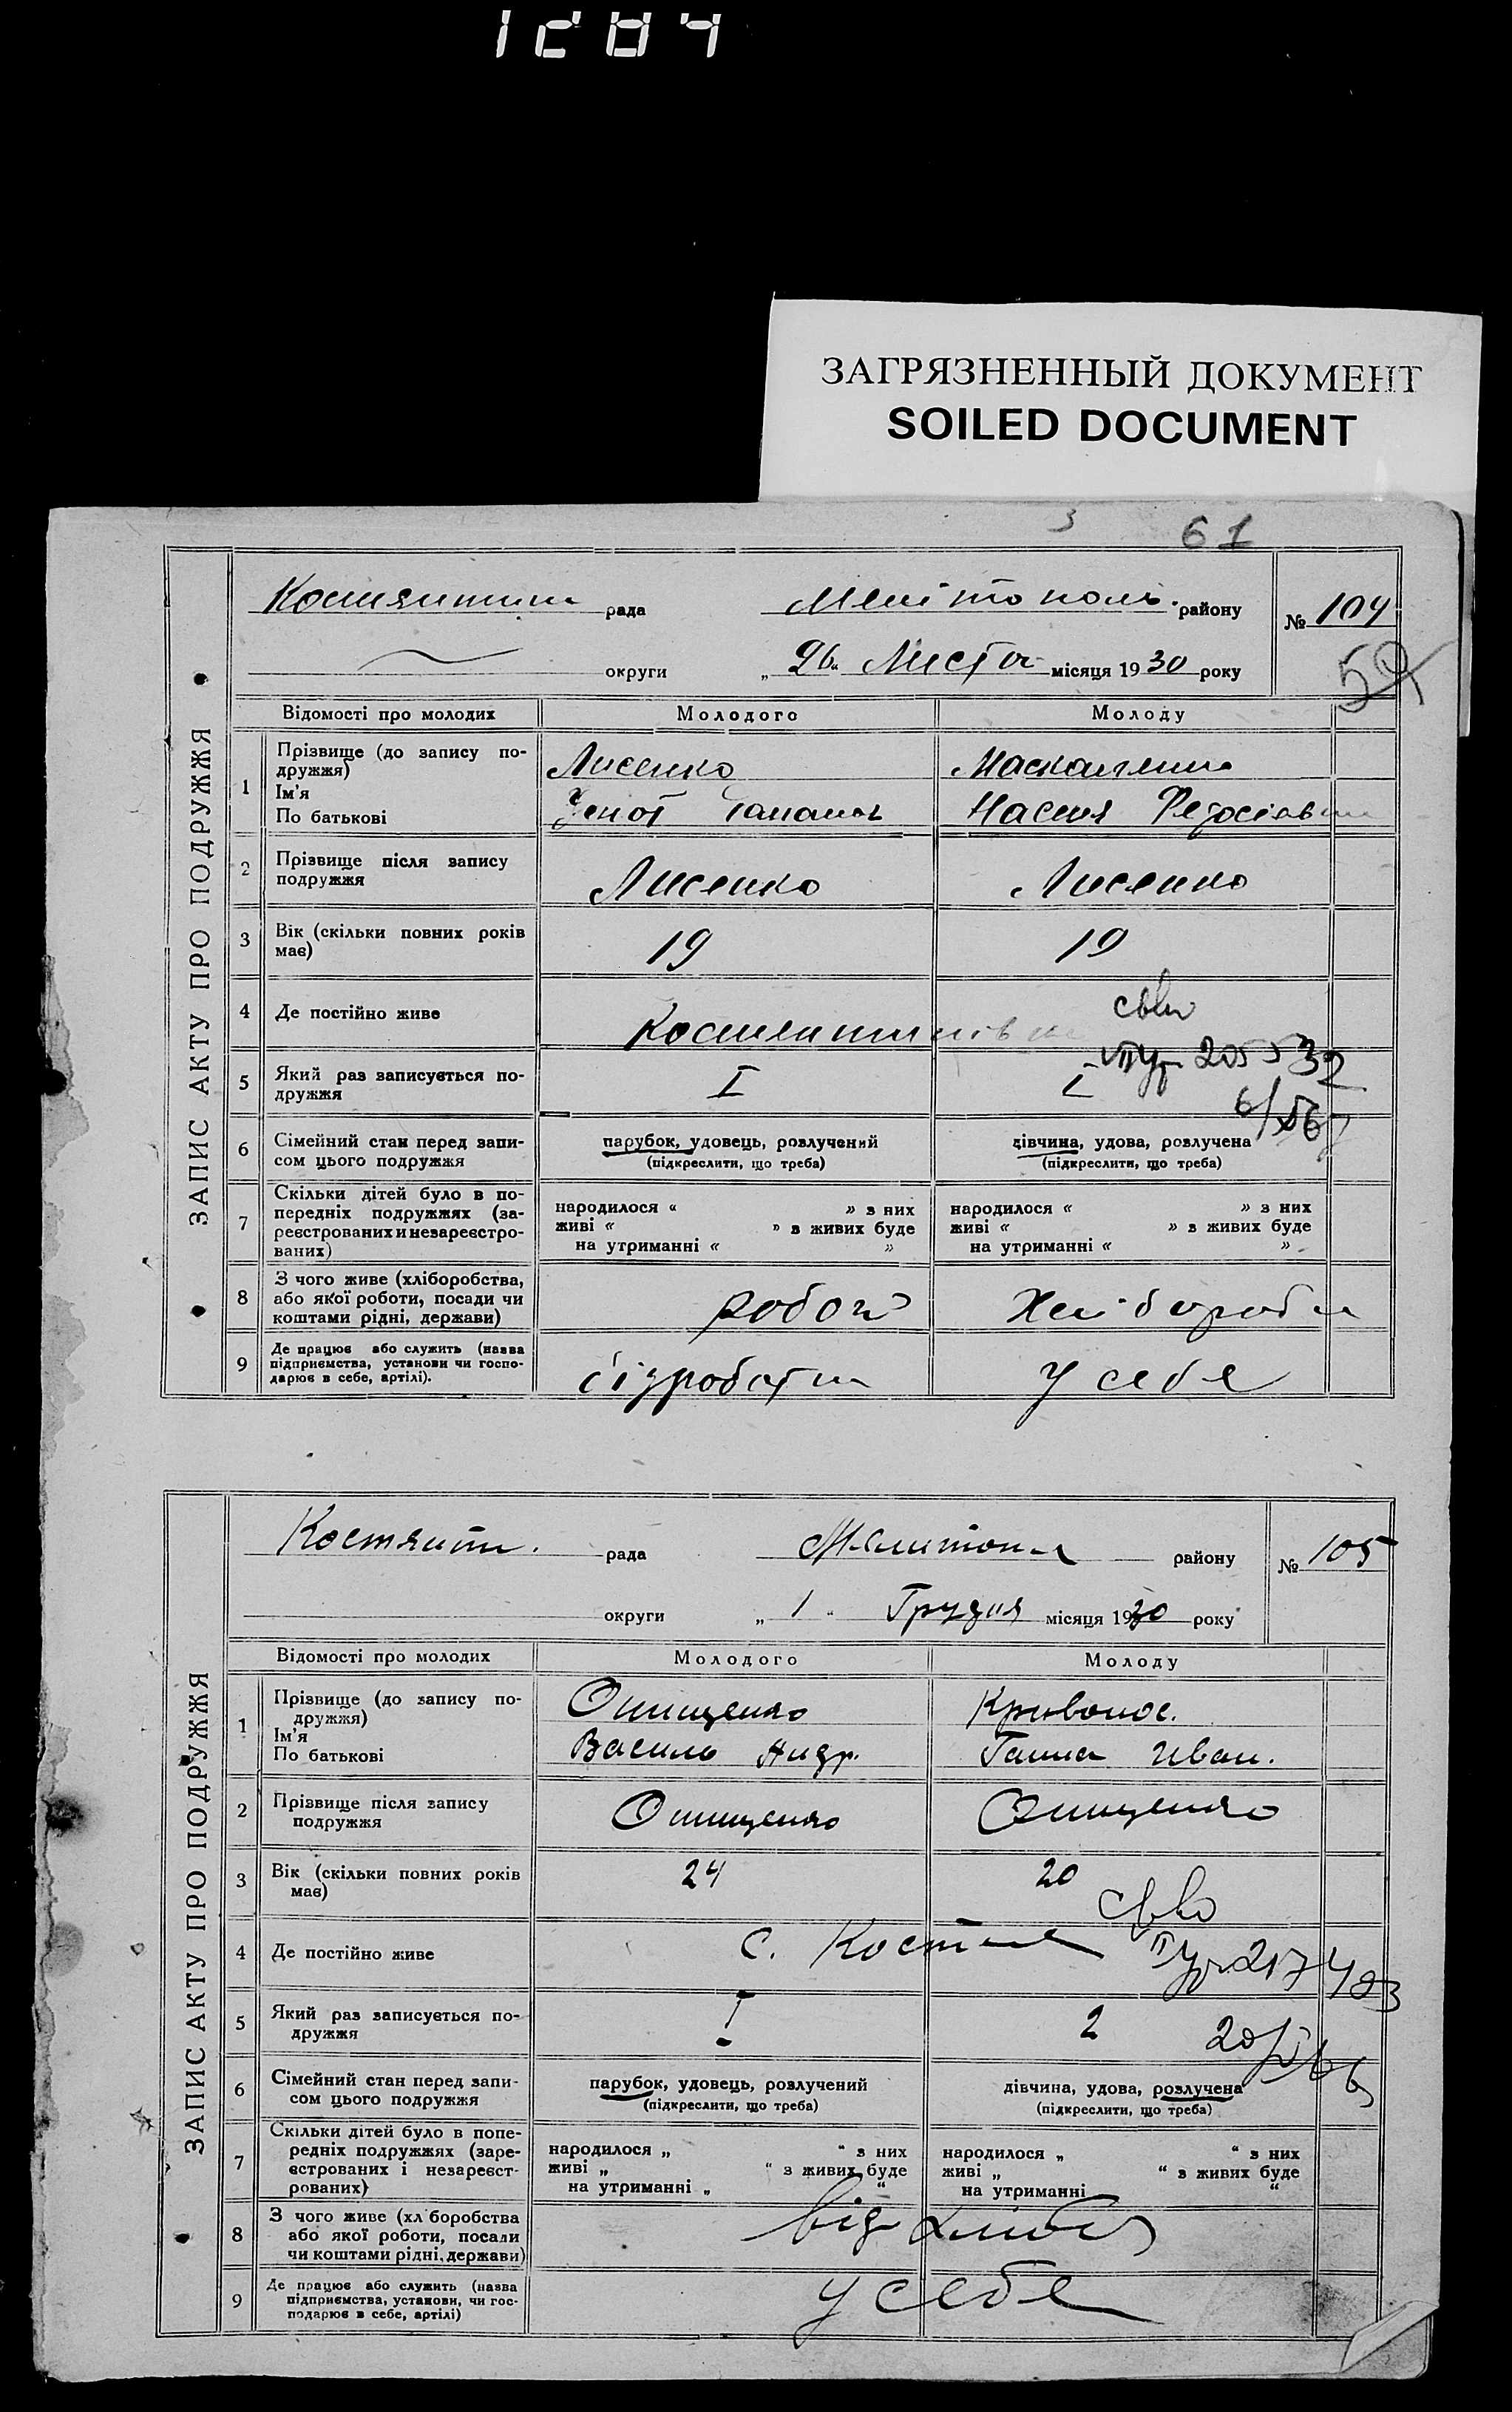 1284
ЗАГРЯЗНЕННЫЙ ДОКУМЕНТ
SOILED DOCUMENT
3 61
ЗАПИС АКТУ ПРО ПОДРУЖЖЯ
рада Мелітополь. району № 104
округи „ 26 " Листоп місяця 1930 року
59
Відомості про молодих Молодого Молоду
1 Прізвище (до запису по-
дружжя)
Ім'я
По батькові
Лисенко
Москаленко
Настя
2 Прізвище після запису
подружжя
Лисенко Лисенко
3 Вік (скільки повних років
має)
19 19
4 Де постійно живе
Костянтинівка
св-во
205532
5 Який раз записується по-
дружжя
I I
6 Сімейний стан перед запи-
сом цього подружжя
парубок, удовець, розлучений
(підкреслити, що треба)
дівчина, удова, розлучена
(підкреслити, що треба)
7 Скільки дітей було в по-
передніх подружжях (за-
реєстрованих и незареєстро-
ваних)
народилося « » з них
живі « » з живих буде
на утриманні « »
народилося « » з них
живі « » з живих буде
на утриманні « »
8 З чого живе (хліборобства,
або якої роботи, посади чи
коштами рідні, держави)
9 Де працює або служить (назва
підприємства, установи чи госпо-
дарює в себе, артілі).
у себе
ЗАПИС АКТУ ПРО ПОДРУЖЖЯ
Костянти. рада району № 105
округи „ 1 " Грудня місяця 1930 року
Відомості про молодих Молодого Молоду
1 Прізвище (до запису по-
дружжя)
Ім'я
По батькові
Онищенко
Василь Андр.
Кривонос.
Ганна Иван.
2 Прізвище після запису
подружжя
Онищенко Онищенко
3 Вік (скільки повних років
має)
24 20
св-во
4 Де постійно живе
с. Костян
217483
5 Який раз записується по-
дружжя
I 2
6 Сімейний стан перед запи-
сом цього подружжя
парубок, удовець, розлучений
(підкреслити, що треба)
дівчина, удова, розлучена
(підкреслити, що треба)
7 Скільки дітей було в попе-
редніх подружжях (заре-
єстрованих і незареєст-
рованих)
народилося „ “ з них
живі „ “ з живих буде
на утриманні „ “
народилося „ “ з них
живі „ “ з живих буде
на утриманні “
8 З чого живе (хл боробства
або якої роботи, посади
чи коштами рідні, держави)
від
9 Де працює або служить (назва
підприємства, установи, чи гос-
подарює в себе, артілі)
у себе